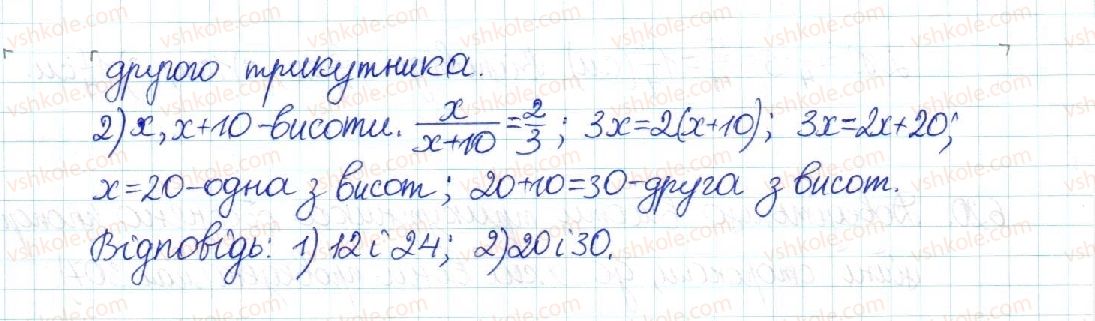 другого трикутника.
2) x, x+10 - висоти. x/(x+10) = 2/3; 3x=2(x+10); 3x=2x+20;
x=20 - одна з висот; 20+10=30 - друга з висот.
Відповідь: 1) 12 і 24; 2) 20 і 30.